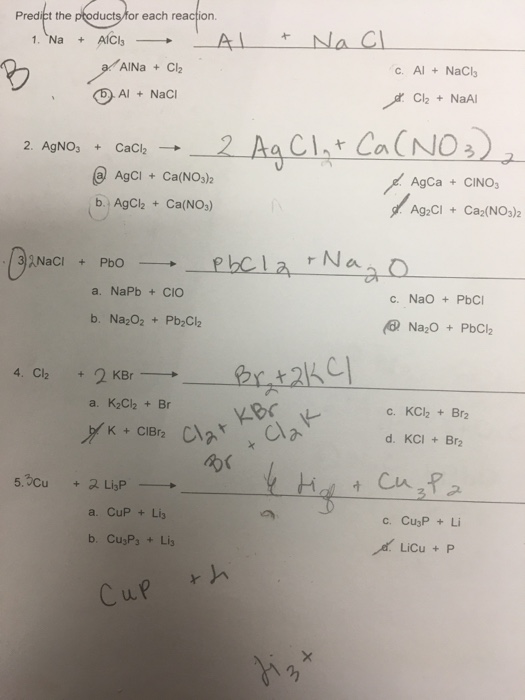 Predict the products for each reaction.
1. Na + AlCl₃ → Al + NaCl
B
a. AlNa + Cl₂ c. Al + NaCl₃
b. Al + NaCl d. Cl₂ + NaAl
2. AgNO₃ + CaCl₂ → 2 AgCl₂ + Ca(NO₃)₂
a. AgCl + Ca(NO₃)₂ c. AgCa + ClNO₃
b. AgCl₂ + Ca(NO₃) d. Ag₂Cl + Ca₂(NO₃)₂
3. 2NaCl + PbO → PbCl₂ + Na₂O
a. NaPb + ClO c. NaO + PbCl
b. Na₂O₂ + Pb₂Cl₂ d. Na₂O + PbCl₂
4. Cl₂ + 2 KBr → Br₂ + 2KCl
a. K₂Cl₂ + Br c. KCl₂ + Br₂
b. K + ClBr₂ d. KCl + Br₂
Cl₂ + KBr
Br + Cl₂K
5. 3Cu + 2 Li₃P → Li + Cu₃P₂
a. CuP + Li₃ c. Cu₃P + Li
b. Cu₃P₃ + Li₃ d. LiCu + P
CuP +
Li₃ x